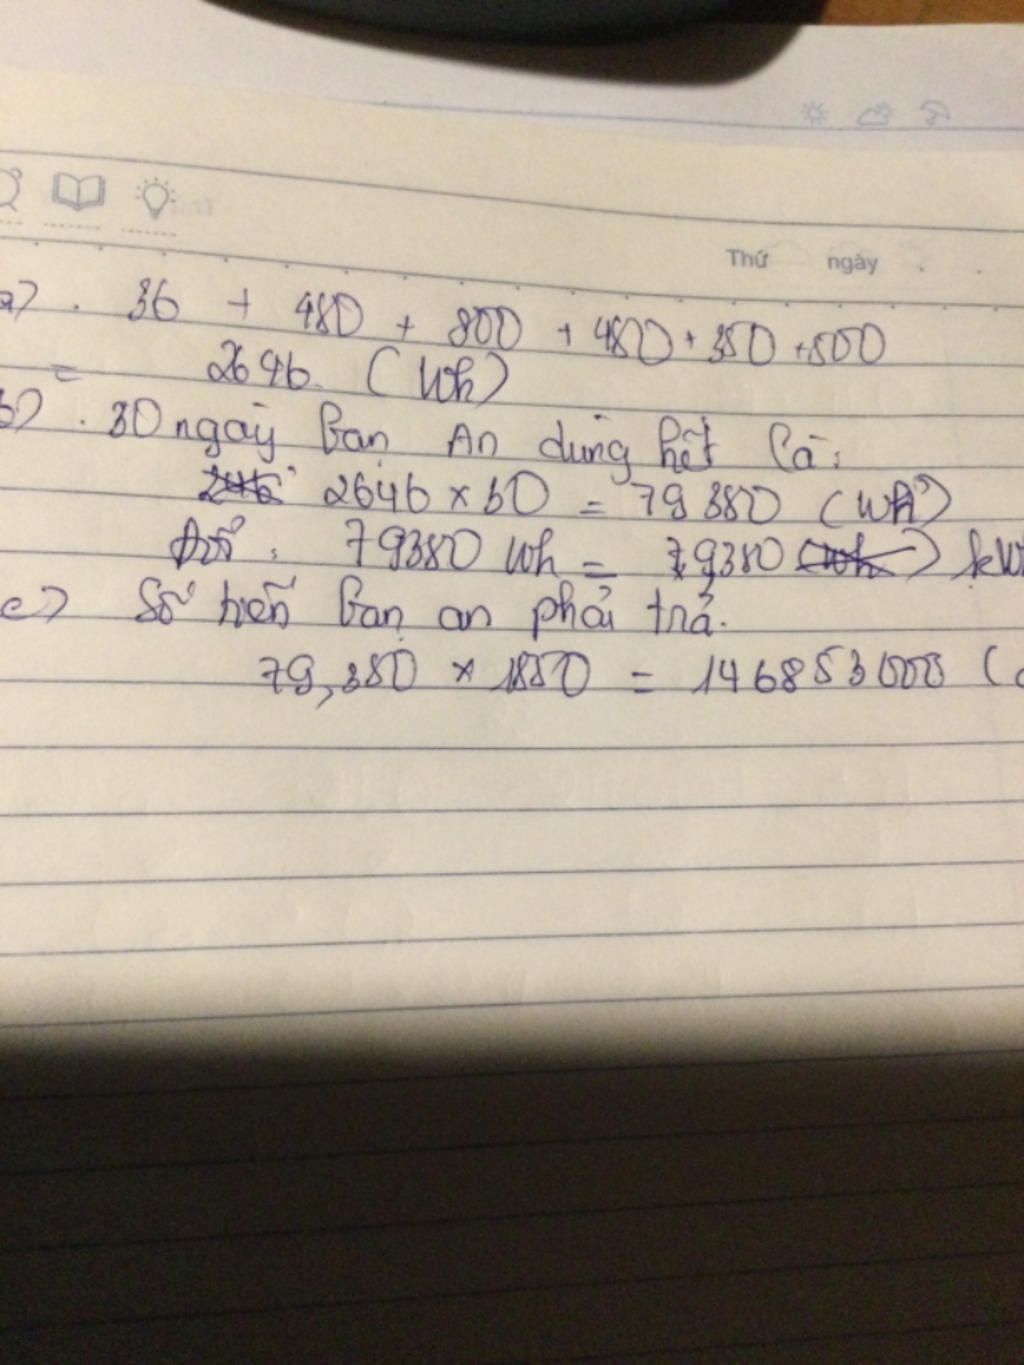 Thứ ngày
a) . 36 + 480 + 800 + 480 + 350 + 500
= 2646 (Wh)
b) . 30 ngày bạn An dùng hết là:
2646 x 30 = 79380 (Wh)
Đổi : 79380 Wh = 79,380 kW
c) Số tiền bạn an phải trả.
79,380 x 1850 = 146853000 (